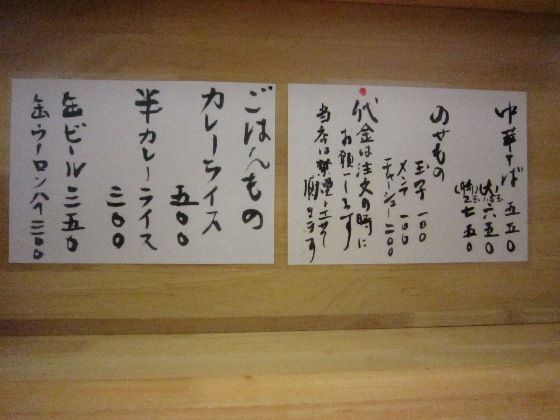 中華そば 五五〇
(大) 六五〇
(特) 七五〇
のせもの
玉子 一〇〇
メンマ 一〇〇
チャーシュー 二〇〇
代金は注文の時に
お願いします
当店は禁煙とさせて
頂きます
ごはんもの
カレーライス
五〇〇
半カレーライス
三〇〇
缶ビール 三五〇
缶ウーロンハイ 三〇〇